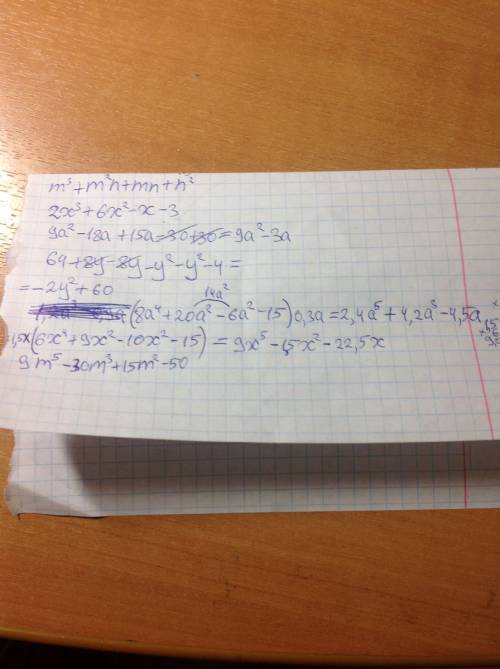 m³+m²n+mn+n²
2x³+6x²-x-3
9a²-18a+15a-30+30=9a²-3a
64+8y-8y-y²-y²-4=
=-2y²+60
14a²
(8a⁴+20a²-6a²-15)0,3a=2,4a⁵+4,2a³-4,5a
1,5x(6x⁴+9x²-10x²-15)=9x⁵-1,5x²-22,5x
9m⁵-30m³+15m²-50